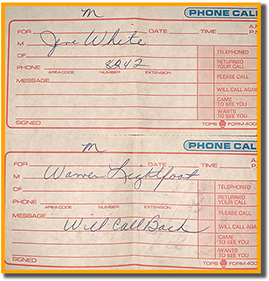 M
PHONE CALL
FOR DATE TIME A.
P.
M Jere White TELEPHONED
OF RETURNED
YOUR CALL
PHONE 8242
AREA CODE NUMBER EXTENSION PLEASE CALL
MESSAGE
WILL CALL AGAIN
CAME
TO SEE YOU
WANTS
TO SEE YOU
SIGNED TOPS FORM 400
M
PHONE CAL
FOR DATE TIME A.
P.
M Warren Lightfoot TELEPHONED
OF RETURNED
YOUR CALL
PHONE
AREA CODE NUMBER EXTENSION PLEASE CALL
MESSAGE
Will Call Back WILL CALL AGA
CAME
TO SEE YOU
WANTS
TO SEE YOU
SIGNED TOPS FORM 400